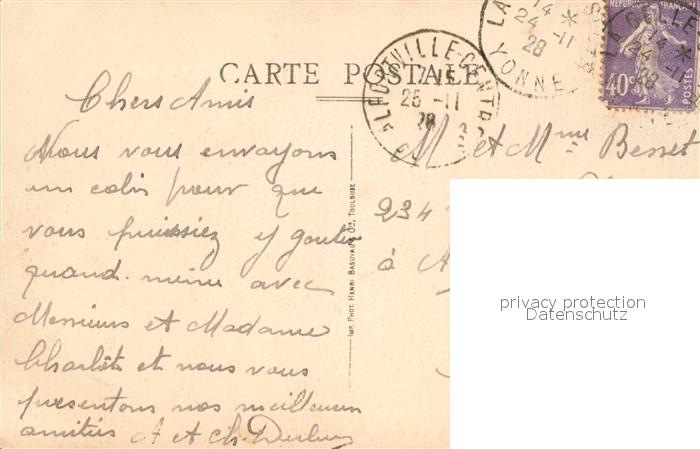 CARTE POSTALE
Chers Amis
Nous vous envoyons
un colis pour que
vous puissiez y gouter
quand même avec
Messieurs et Madame
Charlot et nous vous
présentons nos meilleurs
amitiés A et Ch.
M et Mme Besset
234
à A
IMP. PHOT. HENRI BASUYAU & CIE, TOULOUSE
LA CELLE
14 *
24 -11
28
YONNE
CENTRE
25 -11
28
REPUBLIQUE FRANÇAISE
40c
POSTES
LA CELLE
14 *
24 -11
28
privacy protection
Datenschutz